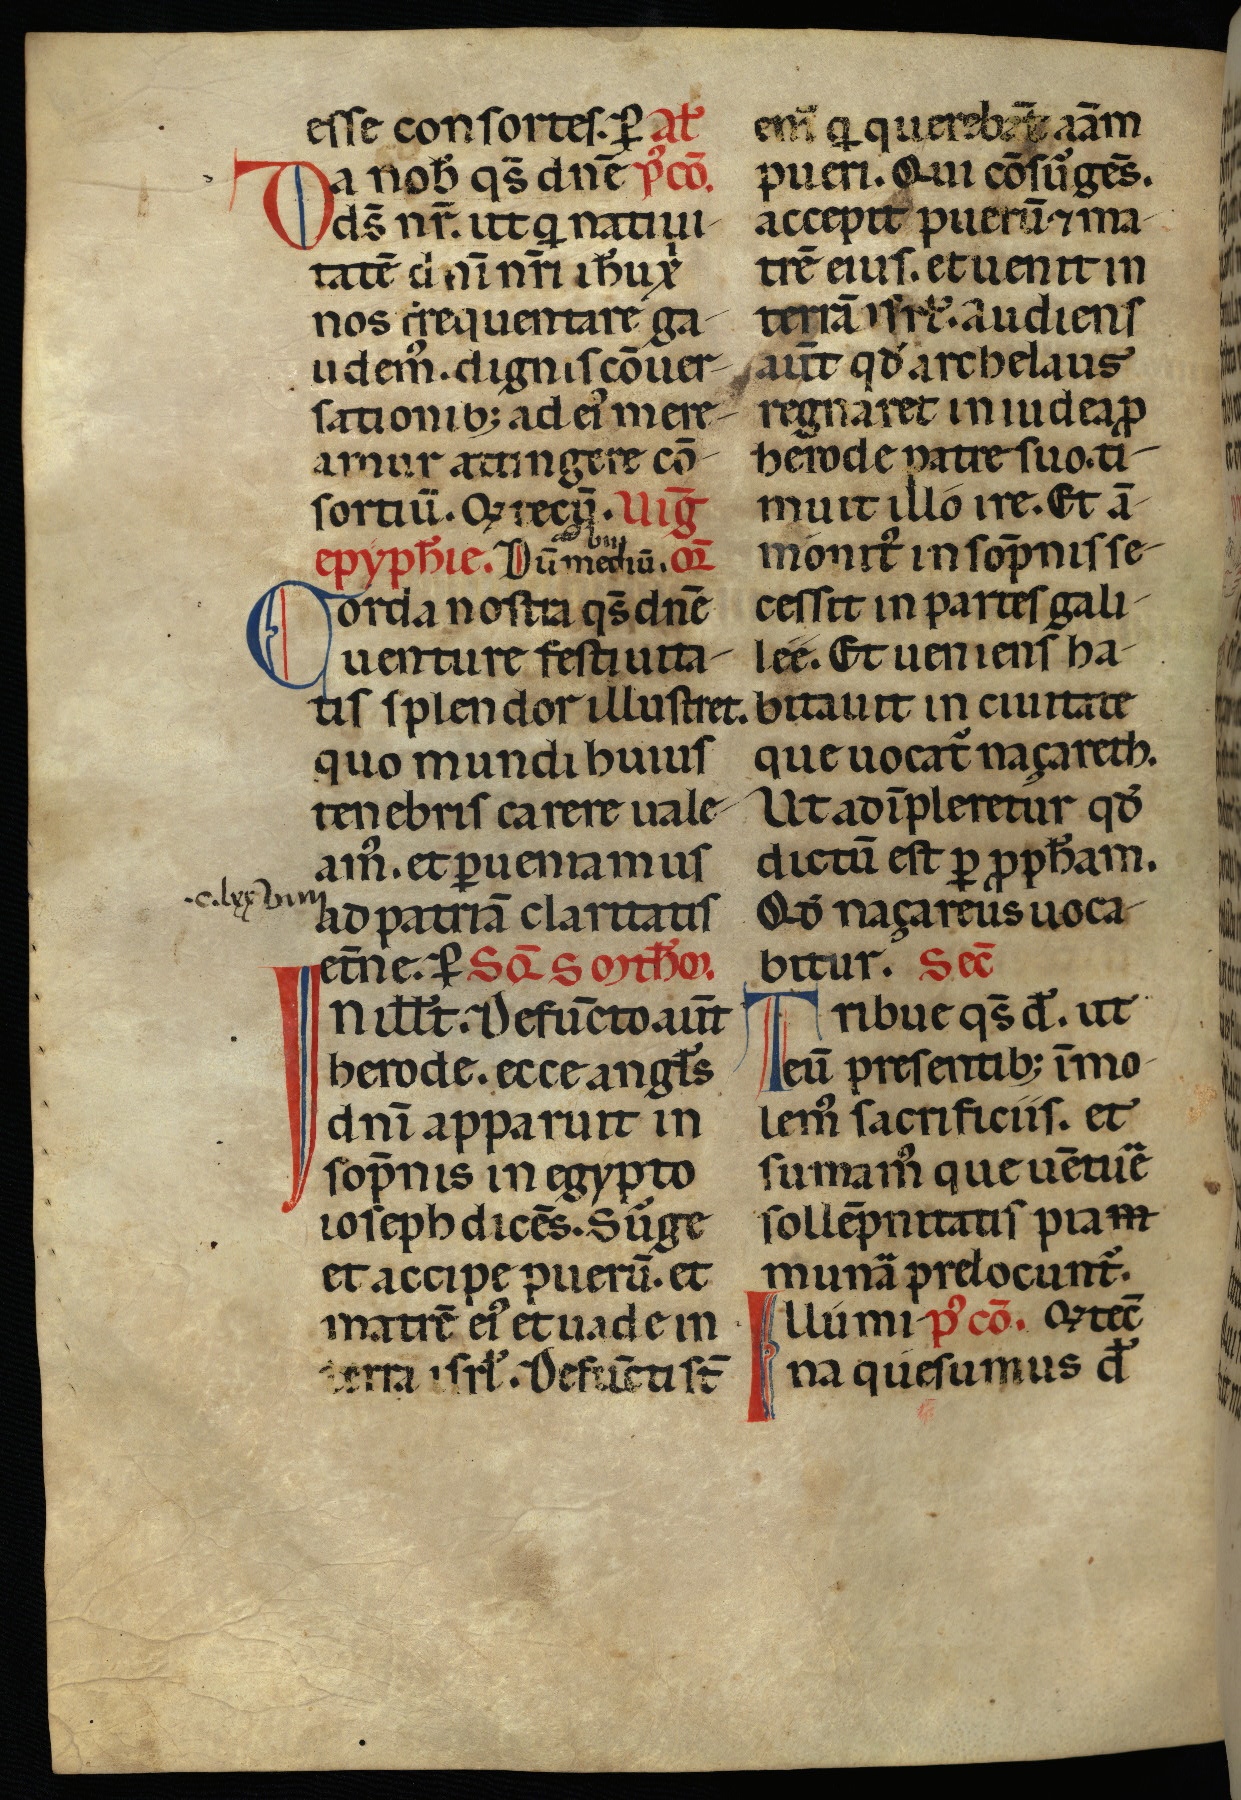 esse consortes. ꝑ Al̄
Da nob̄ qs̄ dn̄e p᷒ cō.
ds̄ nr̄. ut qi natiui-
tatē dn̄i nr̄i ih̄u xp̄i
nos frequentare ga-
udem᷒. dignis cōuer-
sationib; ad ei᷒ mere-
amur attingere cō-
sortiū. Q tecū. Uig̅
epyph̄ie. Dū mediū. or̄
Corda nostra qs̄ dn̄e
uenture festiuita-
tis splendor illustret.
quo mundi huius
tenebris carere uale-
am᷒. et ꝑueniamus
.c.lxxviiii
ad patriā claritatis
et̄ne. ꝑ Scd̄ s mth̄m.
In ill̄ t. Defūcto aūt
herode. ecce angl̄s
dn̄i apparuit in
sop̄nis in egypto
ioseph dicēs. Surge
et accipe puerū. et
matrē ei᷒ et uade in
terra isrl̄. Defūcti st̄
em̄ qi querebāt aīam
pueri. Qui cōsurgēs.
accepit puerū ⁊ ma-
trē eius. et uenit in
terrā isrl̄. Audiens
aūt qd̄ archelaus
regnaret in iudea ꝓ
herode patre suo. ti-
muit illo ire. Et ā-
monit᷒ in sop̄nis se-
cessit in partes gali-
lee. Et ueniens ha-
bitauit in ciuitate
que uocat᷒ naçareth.
Ut adīpleretur qd̄
dictū est ꝑ ꝓph̄am.
Qd̄ naçareus uoca-
bitur. Sec̄
Tribue qs̄ d̄. ut
eū presentib; īmo-
lem᷒ sacrificiis. et
sumam᷒ que uēture
sollēpnitatis piam
munera prelocunt᷒.
Illumi- p᷒ cō. Q tec̄
na quesumus d̄